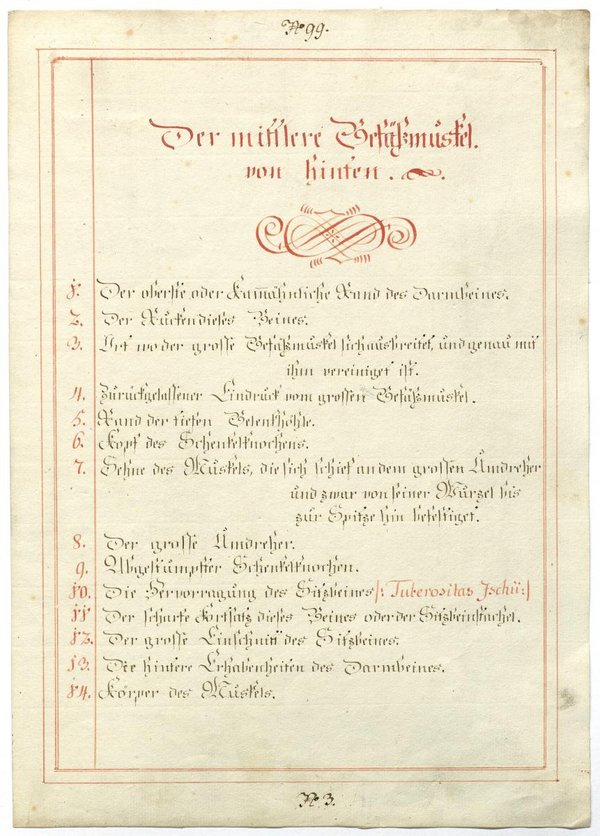 No 99.
Der mittlere Gesäßmuskel.
von hinten.
1. Der oberste oder kam̅ähnliche Rand des Darmbeines.
2. Der Rücken dieses Beines.
3. Ort wo der grosse Gesäßmuskel sich ausbreitet, und genau mit
ihm vereiniget ist.
4. Zurückgelassener Eindruck vom grossen Gesäßmuskel.
5. Rand der tiefen Gelenkhöhle.
6. Kopf des Schenkelknochens.
7. Sehne des Muskels, die sich schief an dem grossen Umdreher
und zwar von seiner Wurzel bis
zur Spitze hin befestiget.
8. Der grosse Umdreher.
9. Abgestumpfter Schenkelknochen.
10. Die Hervorragung des Sitzbeines /: Tuberositas Jschii :/
11. Der scharfe Fortsatz dieses Beines oder der Sitzbeinstachel.
12. Der grosse Einschnitt des Sitzbeines.
13. Die hintere Erhabenheiten des Darmbeines.
14. Körper des Muskels.
No 3.